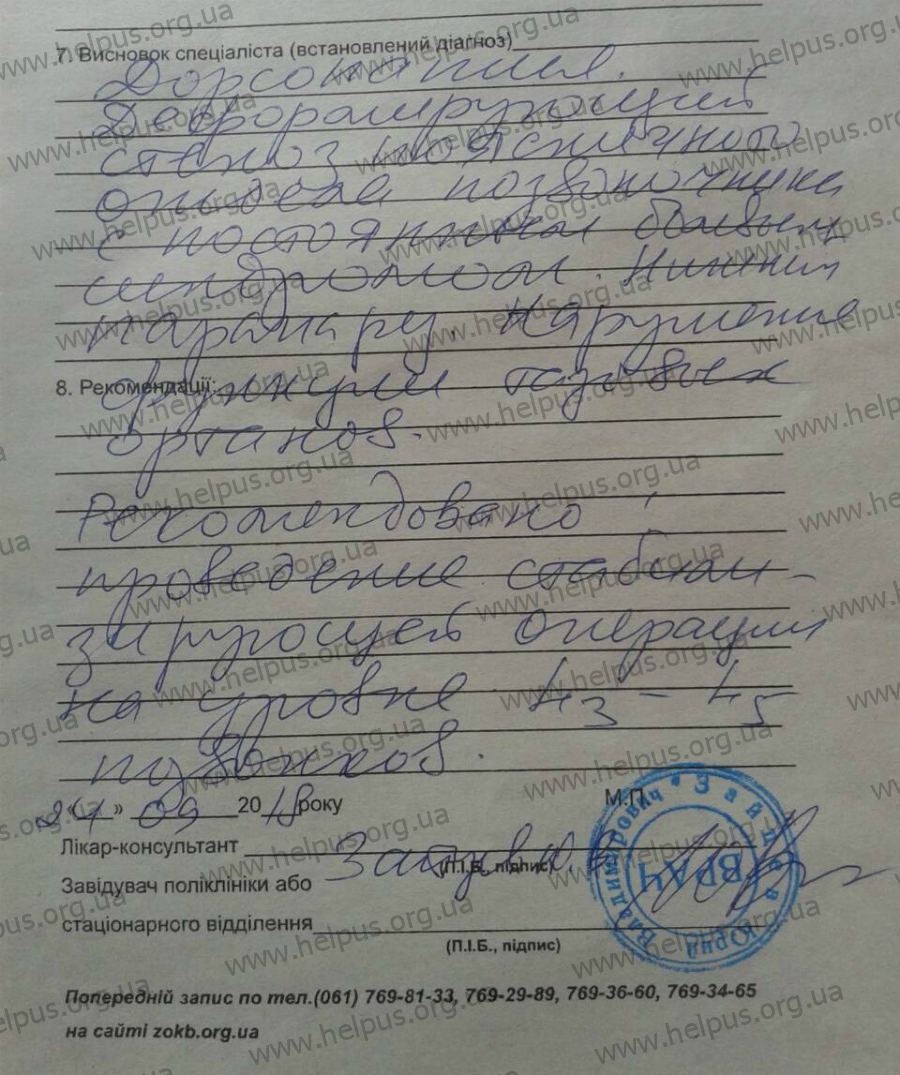 7. Висновок спеціаліста (встановлений діагноз)
Дорсопатия.
Деформирующий
стеноз поясничного
отдела позвоночника
с постоянным болевым
синдромом. Нижний
парапарез. Нарушение
8. Рекомендації:
функции тазовых
органов.
Рекомендовано:
проведение стабили-
зирующей операции
на уровне L3 - L5
позвонков.
«24» 09 2018 року
М.П.
Лікар-консультант Зайцев Ю.В.
(П.І.Б., підпис)
Завідувач поліклініки або
стаціонарного відділення
(П.І.Б., підпис)
Зайцев Юрий Владимирович
ВРАЧ
Попередній запис по тел.(061) 769-81-33, 769-29-89, 769-36-60, 769-34-65
на сайті zokb.org.ua
www.helpus.org.ua